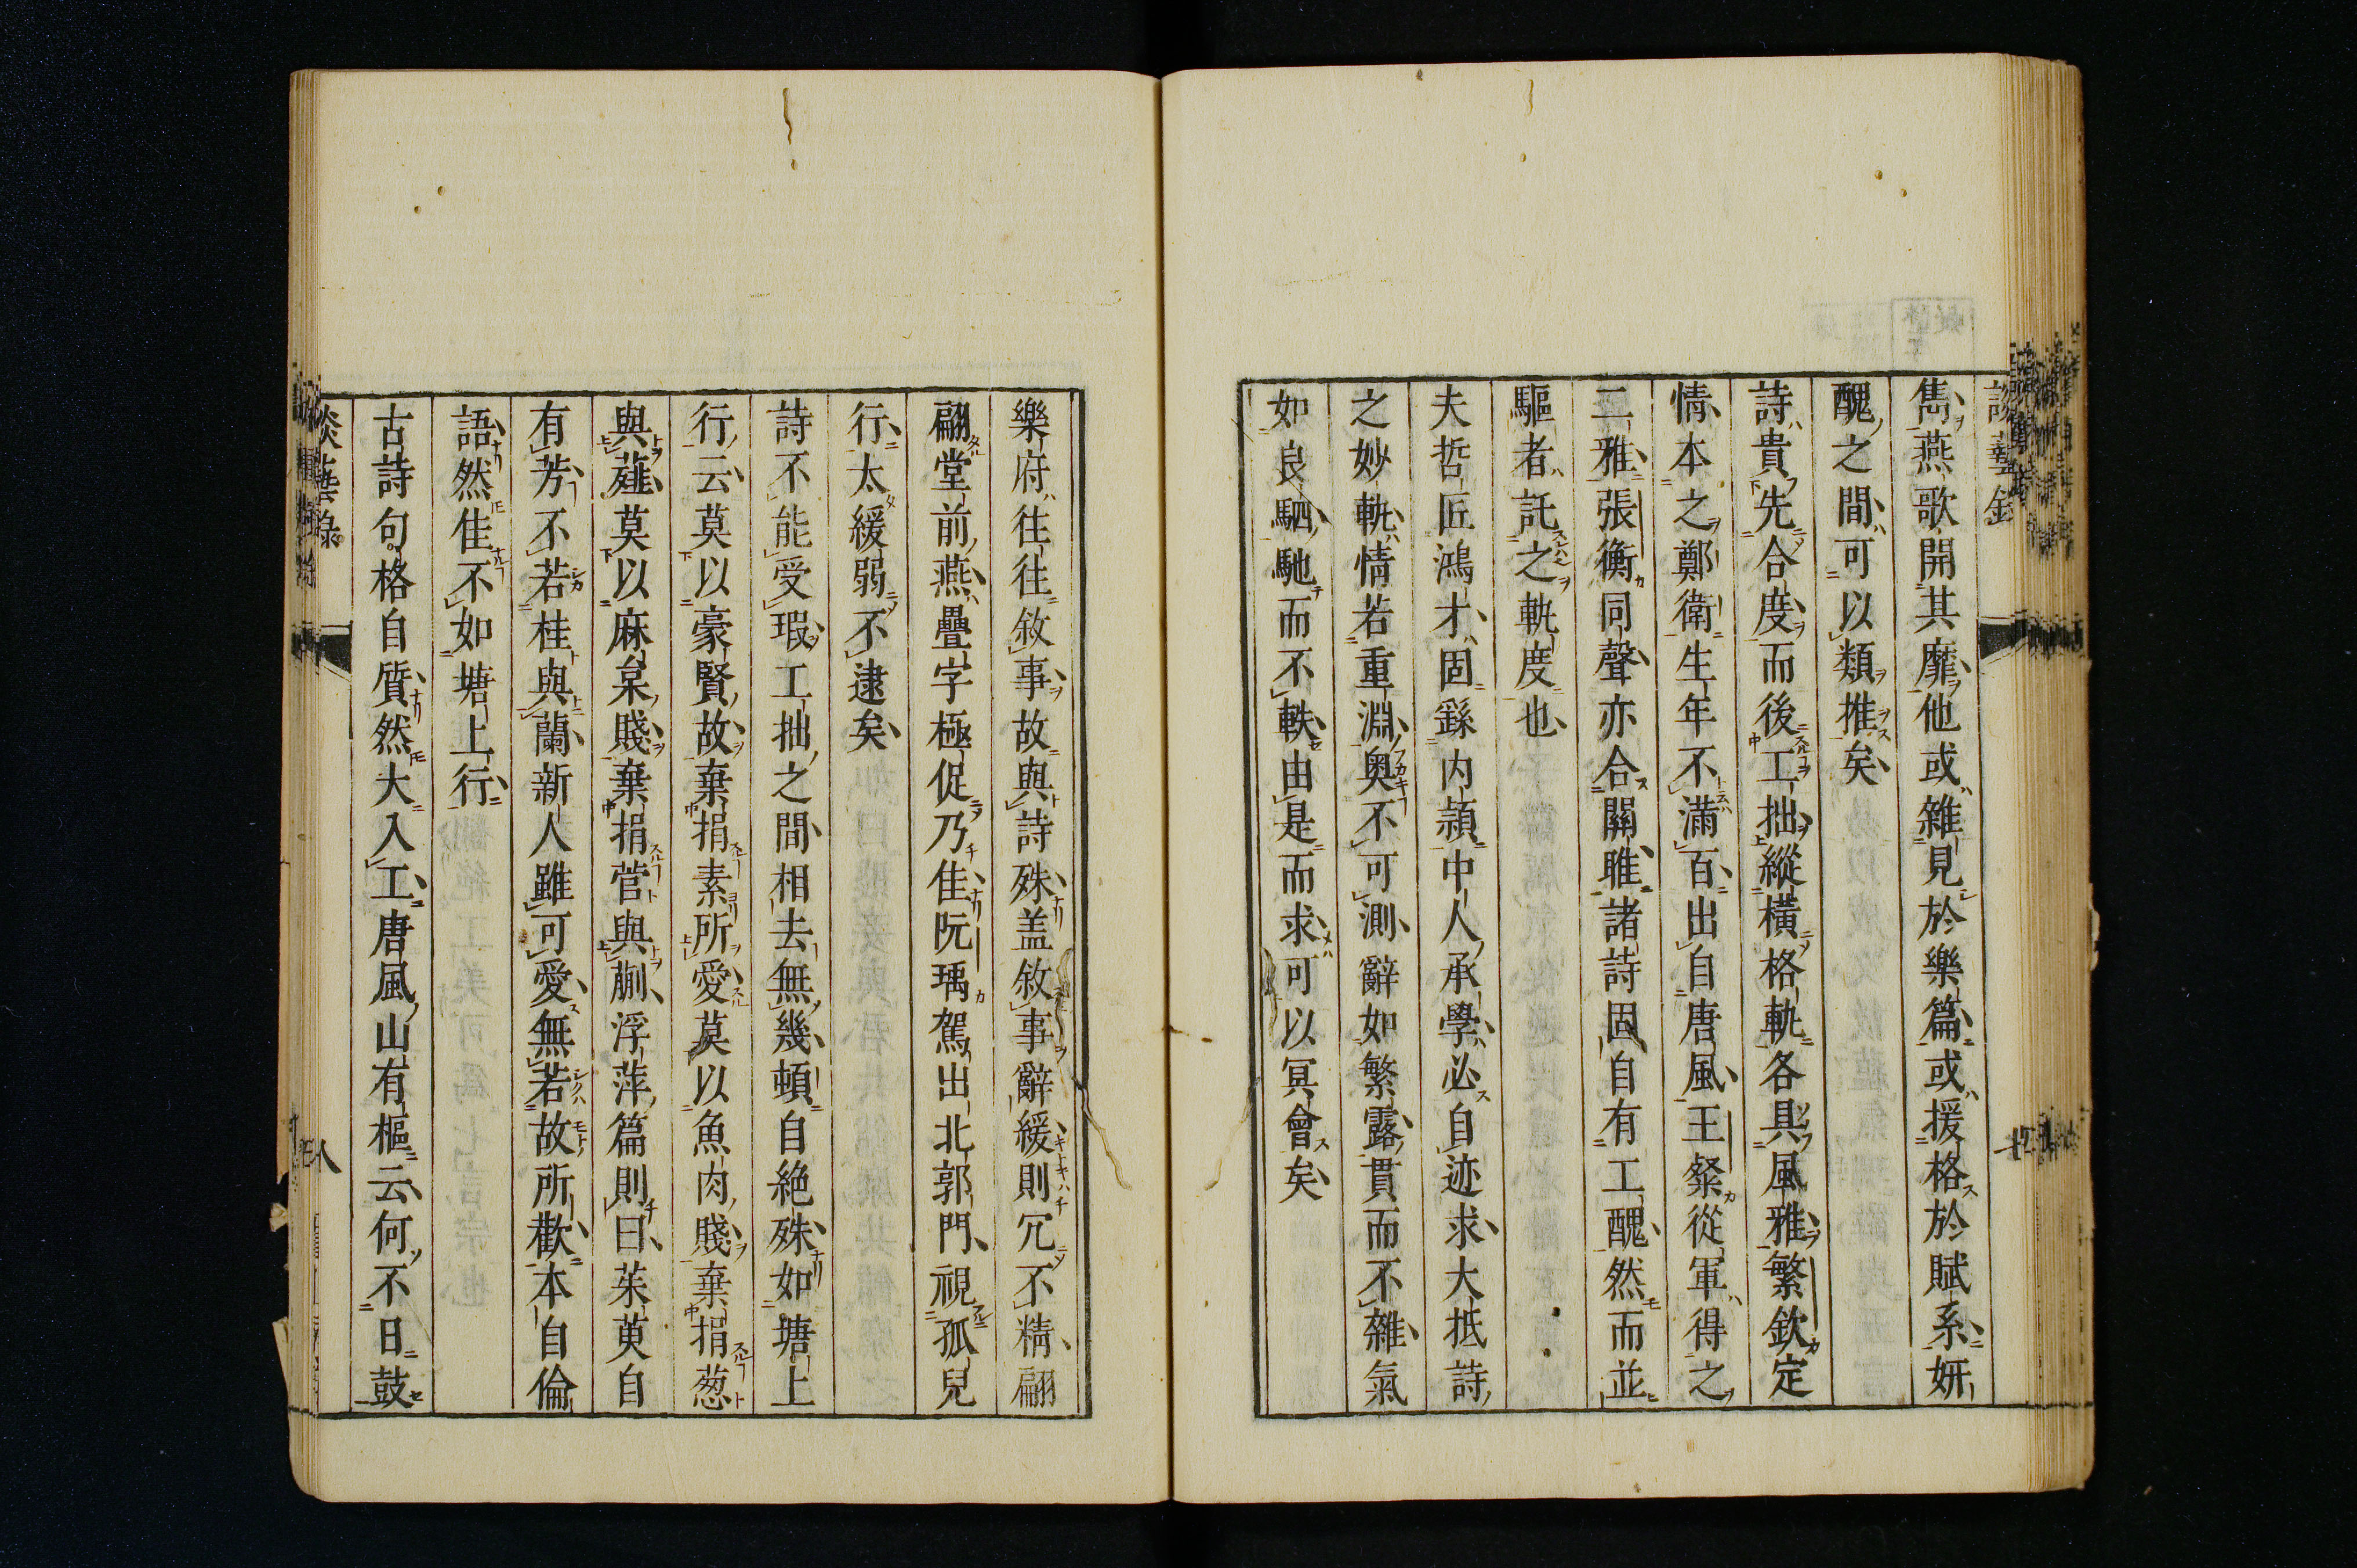 談藝錄
雋燕歌開其靡他或雜見於樂篇或援格於賦系妍
醜之間可以類推矣
詩貴先合度而後工拙縱橫格軌各具風雅繁欽定
情本之鄭衛生年不滿百出自唐風王粲從軍得之
二雅張衡同聲亦合關雎諸詩固自有工醜然而並
驅者託之軌度也
夫哲匠鴻才固繇內頴中人承學必自迹求大抵詩
之妙軌情若重淵奧不可測辭如繁露貫而不雜氣
如良駟馳而不軼由是而求可以冥會矣
樂府往往敘事故與詩殊盖敘事辭緩則冗不精翩
翩堂前燕疊字極促乃佳阮瑀駕出北郭門視孤兒
行太緩弱不逮矣
詩不能受瑕工拙之間相去無幾頓自絶殊如塘上
行云莫以豪賢故棄捐素所愛莫以魚肉賤棄捐葱
與薤莫以麻枲賤棄捐菅與蒯浮萍篇則曰茱萸自
有芳不若桂與蘭新人雖可愛無若故所歡本自倫
語然佳不如塘上行
古詩句格自質然大入工唐風山有樞云何不日鼓
談藝錄
八